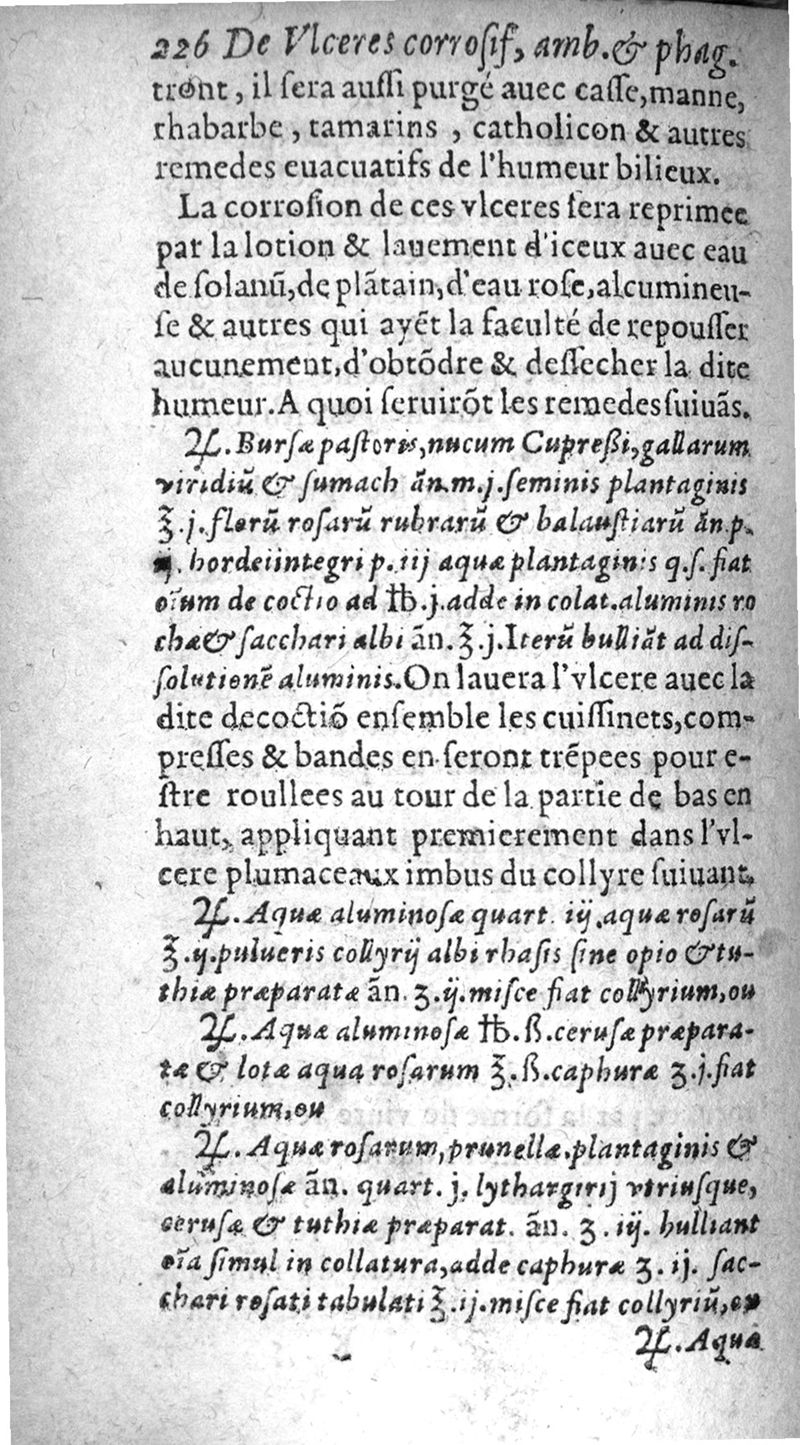 226 De Vlceres corrosif, amb. & phag.
tront, il ſera auſſi purgé auec caſſe,manne,
rhabarbe , tamarins , catholicon & autres
remedes euacuatifs de l'humeur bilieux.
La corroſion de ces vlceres ſera reprimee
par la lotion & lauement d'iceux auec eau
de ſolanũ,de plãtain,d'eau roſe,alcumineu-
ſe & autres qui ayẽt la faculté de repouſſer
aucunement,d'obtõdre & deſſecher la dite
humeur.A quoi ſeruirõt les remedes ſuiuãs.
♃.Burſæ paſtoris,nucum Cupreßi,gallarum
viridiũ & ſumach ãn.m.j.ſeminis plantaginis
℥.j.florũ roſarũ rubrarũ & balauſtiarũ ãn.p.
ij. hordei integri p.iij aquæ plantaginis q.ſ.fiat
oĩum de coctio ad ℔.j.adde in colat.aluminis ro
chæ & ſacchari albi ãn.℥.j.Iterũ bulliãt ad diſ-
ſolutionẽ aluminis.On lauera l'vlcere auec la
dite decoctiõ enſemble les cuiſſinets,com-
preſſes & bandes en ſeront trẽpees pour e-
ſtre roullees au tour de la partie de bas en
haut, appliquant premierement dans l'vl-
cere plumaceaux imbus du collyre ſuiuant.
♃.Aquæ aluminoſæ quart. iij.aquæ roſarũ
℥.ij.pulueris collyrij albi rhaſis ſine opio & tu-
thiæ præparatæ ãn. ʒ.ij.miſce fiat collyrium,ou
♃.Aquæ aluminoſæ ℔.ß.ceruſæ præpara-
tæ & lotæ aqua roſarum ℥.ß.caphuræ ʒ.j.fiat
collyrium,ou
♃.Aquæ roſarum,prunellæ.plantaginis &
aluminoſæ ãn. quart.j. lythargirij vtriuſque,
ceruſæ & tuthiæ præparat. ãn. ʒ.iij. bulliant
oĩa ſimul in collatura,adde caphuræ ʒ.ij. ſac-
chari roſati tabulati ℥.ij.miſce fiat collyriũ,ou
♃.Aqua